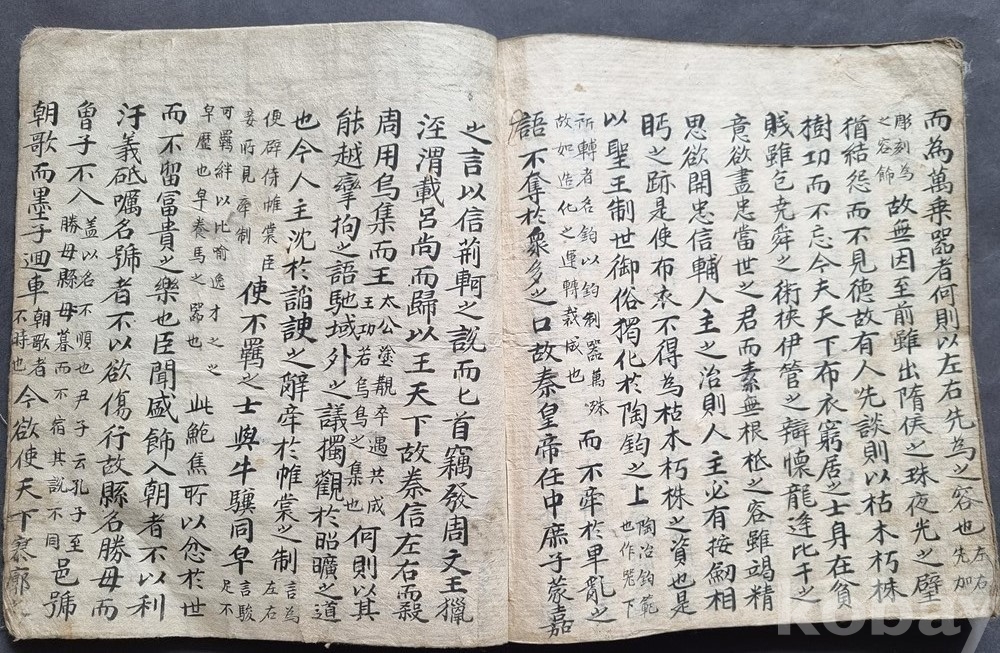 而為萬乗器者何則以左右先為之容也左右先加
彫刻為之容飾故無因至前雖出隋侯之珠夜光之璧
猶結怨而不見德故有人先談則以枯木朽株
樹功而不忘今夫天下布衣窮居之士身在貧
賤雖包堯舜之術挾伊管之辯懷龍逄比干之
意欲盡忠當世之君而素無根柢之容雖竭精
思欲開忠信輔人主之治則人主必有按劒相
眄之跡是使布衣不得為枯木朽株之資也是
以聖王制世御俗獨化於陶鈞之上陶冶鈞範也作器下
所轉者名鈞以鈞制器萬殊故如造化之運轉裁成也而不牽於卑亂之
語不奪於衆多之口故秦皇帝任中庶子蒙嘉
之言以信荊軻之説而匕首竊發周文王獵
涇渭載呂尚而歸以王天下故秦信左右而殺
周用烏集而王太公塗覯卒遇共成王功若烏鳥之集也何則以其
能越攣拘之語馳域外之議獨觀於昭曠之道
也今人主沈於諂諛之辭牽於帷裳之制言為左右
便辟侍帷裳臣妾所見牽制使不羈之士與牛驥同皁言駿足不
可羈絆以比喻逸才之之皁歷也皁養馬之器也此鮑焦所以忿於世
而不留富貴之樂也臣聞盛飾入朝者不以利
汙義砥礪名號者不以欲傷行故縣名勝母而
曾子不入盖以名不順也尹子云孔子至勝母縣母暮而不宿其說不同邑號
朝歌而墨子迴車朝歌者不時也今欲使天下寥廓之